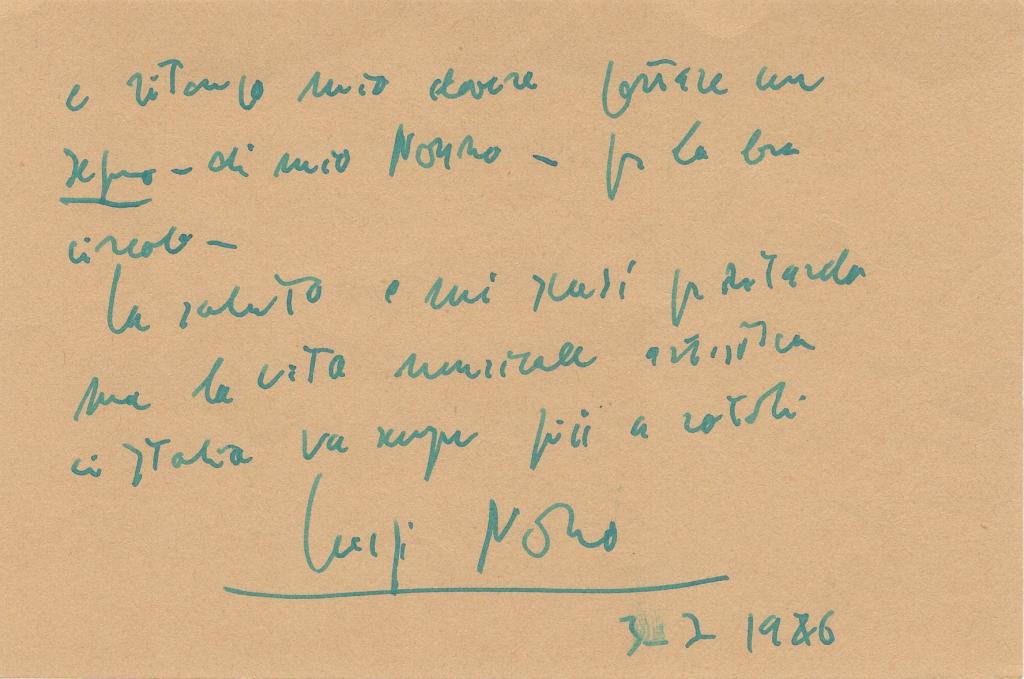 e ritengo mio dovere portare un
segno - di mio Nonno - pr la
circolo -
La saluto e mi scusi pr ritardo
ma la vita musicale artistica
in Italia va sempre più a rotoli
Luigi Nono
3 2 1986